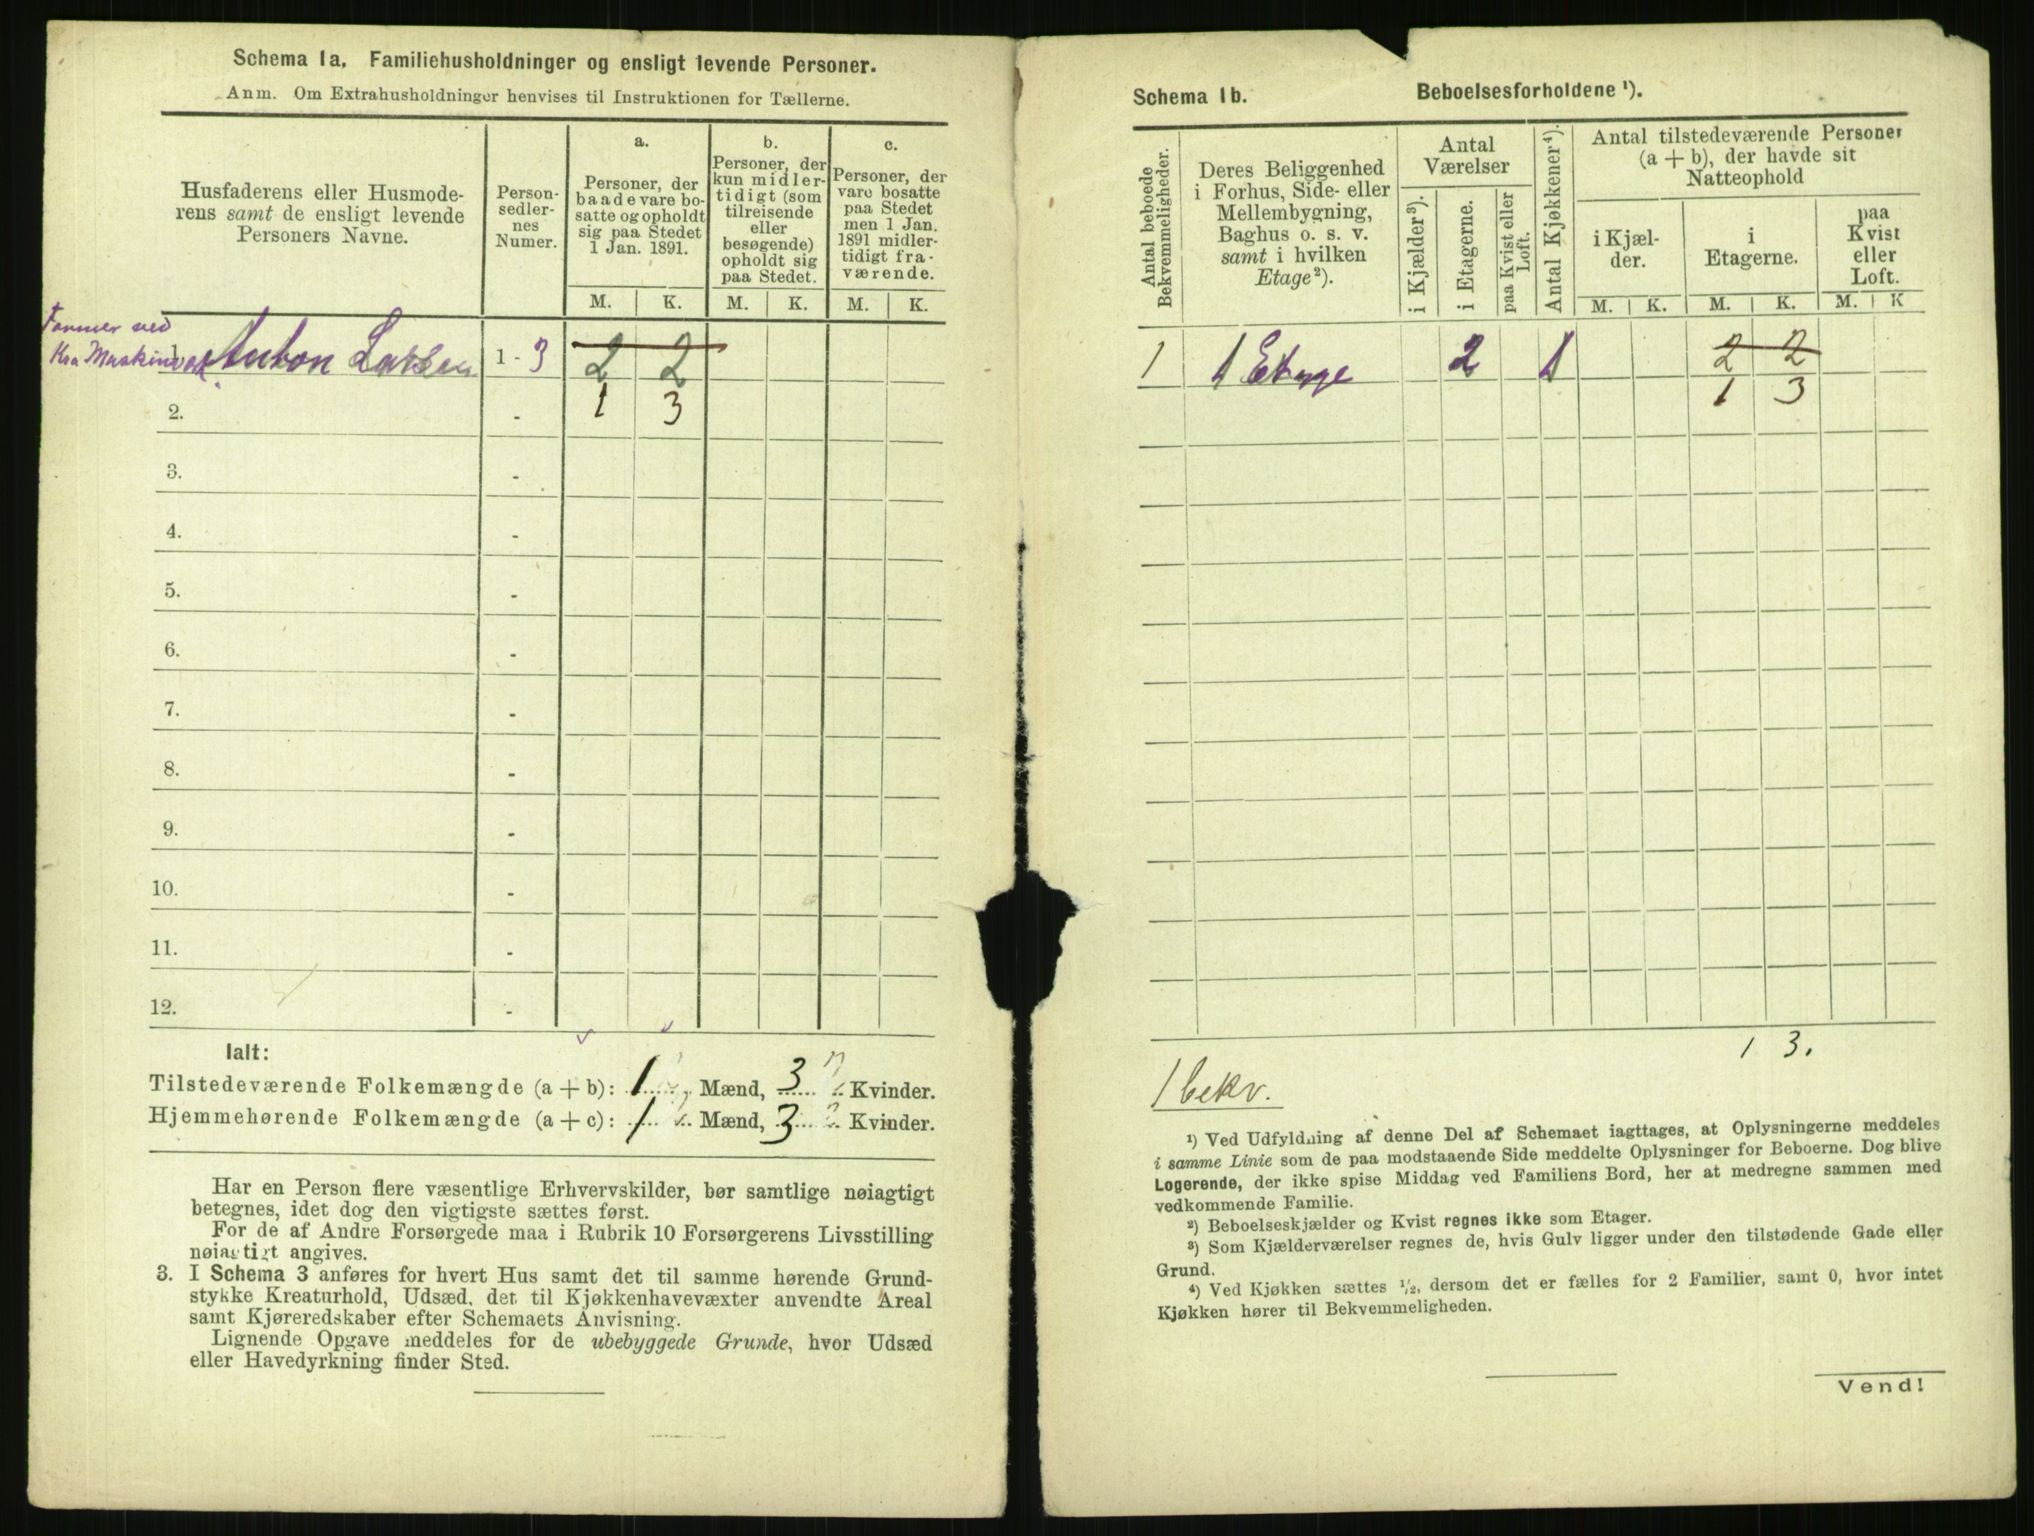 Schema 1a. Familiehusholdninger og ensligt levende Personer.
Anm. Om Extrahusholdninger henvises til Instruktionen for Tællerne.
Husfaderens eller Husmode-
rens samt de ensligt levende
Personers Navne.
Person-
sedler-
nes
Numer.
a.
Personer, der
baade vare bo-
satte og opholdt
sig paa Stedet
1 Jan. 1891.
M. K.
b.
Personer, der
kun midler-
tidigt (som
tilreisende
eller
besøgende)
opholdt sig
paa Stedet.
M. K.
c.
Personer, der
vare bosatte
paa Stedet
men 1 Jan.
1891 midler-
tidigt fra-
værende.
M. K.
Former ved
Kra Maskinverk.
1. Anton Larsen 1 - 3 2 2
2. - 1 3
3. -
4. -
5. -
6. -
7. -
8. -
9. -
10. -
11. -
12. -
Ialt:
Tilstedeværende Folkemængde (a + b): 1 Mænd, 3 Kvinder.
Hjemmehørende Folkemængde (a + c): 1 Mænd, 3 Kvinder.
Har en Person flere væsentlige Erhvervskilder, bør samtlige nøiagtigt
betegnes, idet dog den vigtigste sættes først.
For de af Andre Forsørgede maa i Rubrik 10 Forsørgerens Livsstilling
nøiagtigt angives.
3. I Schema 3 anføres for hvert Hus samt det til samme hørende Grund-
stykke Kreaturhold, Udsæd, det til Kjøkkenhavevæxter anvendte Areal
samt Kjøreredskaber efter Schemaets Anvisning.
Lignende Opgave meddeles for de ubebyggede Grunde, hvor Udsæd
eller Havedyrkning finder Sted.
Schema 1b. Beboelsesforholdene ¹).
Antal beboede
Bekvemmeligheder.
Deres Beliggenhed
i Forhus, Side- eller
Mellembygning,
Baghus o. s. v.
samt i hvilken
Etage²).
Antal
Værelser
i Kjælder³).
i Etagerne.
paa Kvist eller
Loft.
Antal Kjøkkener⁴).
Antal tilstedeværende Personer
(a + b), der havde sit
Natteophold
i Kjæl-
der.
M. K.
i
Etagerne.
M. K.
paa
Kvist
eller
Loft.
M. K
1 1 Etage 2 1 2 2
1 3
1 3.
1 bekv.
¹) Ved Udfyldning af denne Del af Schemaet iagttages, at Oplysningerne meddeles
i samme Linie som de paa modstaaende Side meddelte Oplysninger for Beboerne. Dog blive
Logerende, der ikke spise Middag ved Familiens Bord, her at medregne sammen med
vedkommende Familie.
²) Beboelseskjælder og Kvist regnes ikke som Etager.
³) Som Kjælderværelser regnes de, hvis Gulv ligger under den tilstødende Gade eller
Grund.
⁴) Ved Kjøkken sættes ½, dersom det er fælles for 2 Familier, samt 0, hvor intet
Kjøkken hører til Bekvemmeligheden.
Vend!